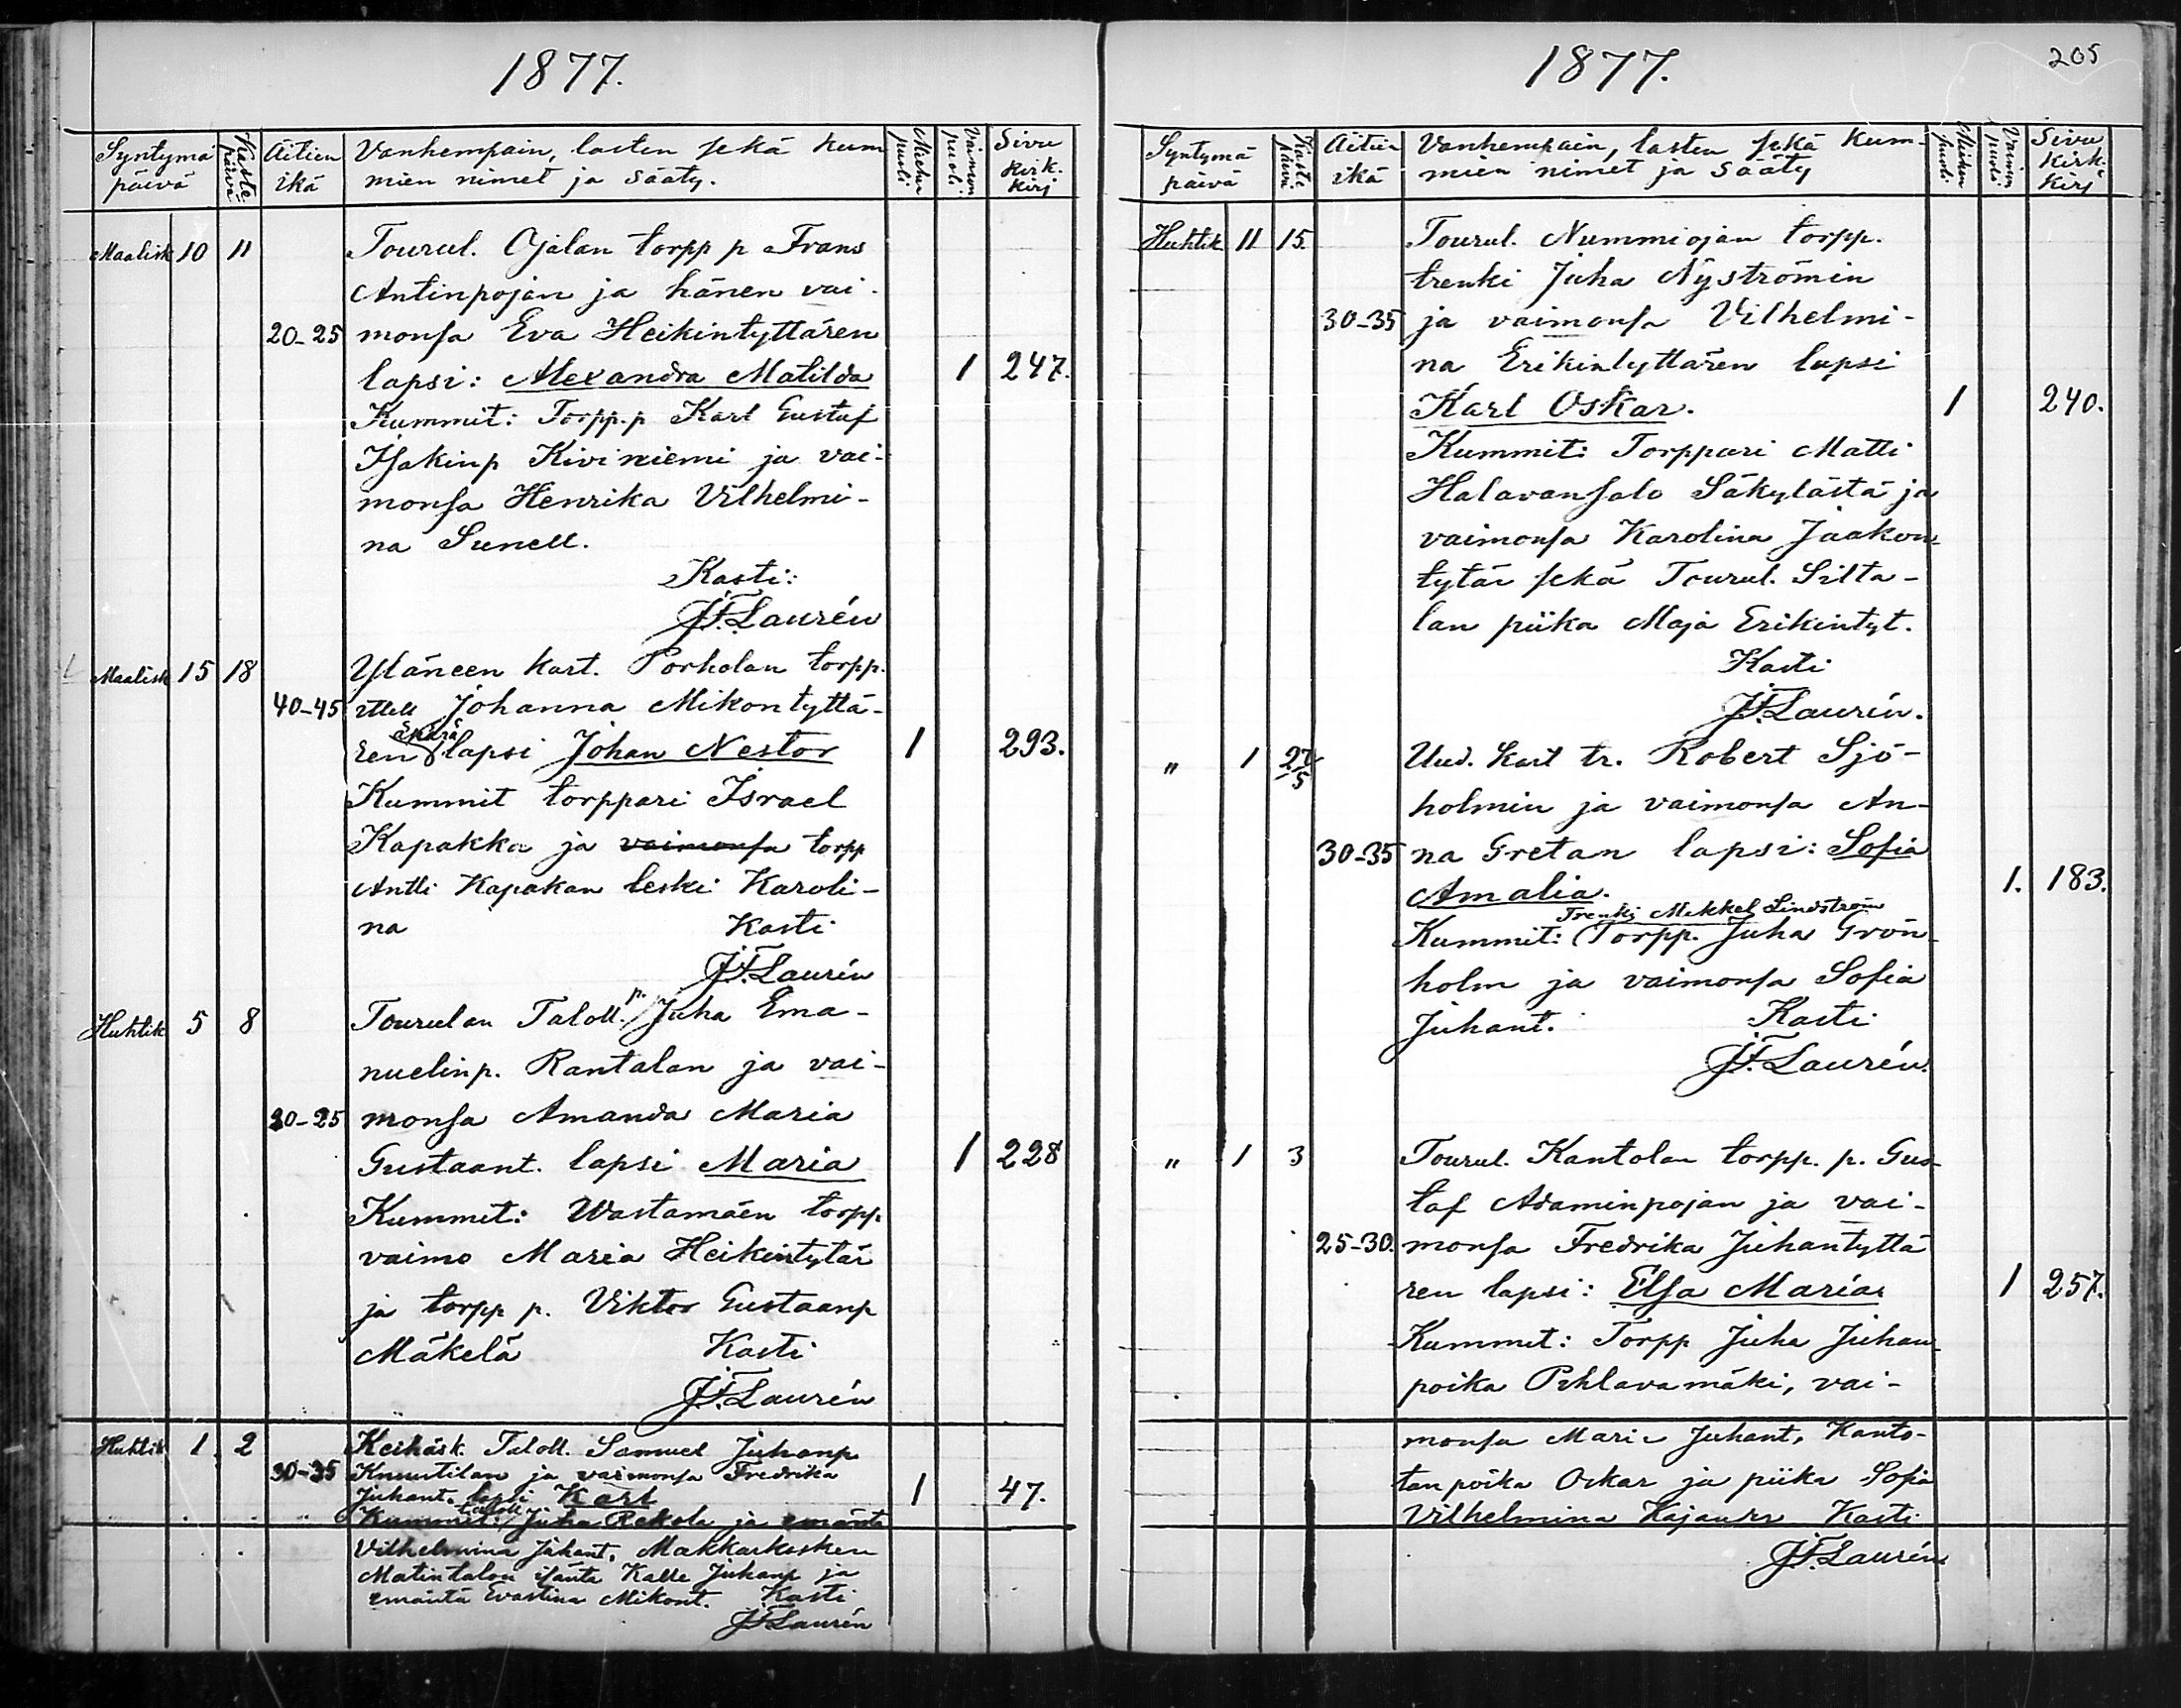 1877.
Syntymä päivä | Kaste päivä | Äitien ikä | Vanhempain, lasten sekä kum- mien nimet ja sääty. | Miehen puoli | Vaimon puoli | Sivu kirk. kirj
Maalisk 10 11 Tourul. Ojalan torpp p Frans
Antinpojan ja hänen vai-
20-25 monsa Eva Heikintyttären
lapsi: Alexandra Matilda 1 247.
Kummit: Torpp.p Karl Gustaf
Isakinp Kiviniemi ja vai-
monsa Henrika Vilhelmi-
na Sunell.
Kasti:
J.F. Laurén
Maalisk 15 18 Yläneen kart. Porholan torpp.
40-45 ittell Johanna Mikontyttä-
ren äpärä lapsi Johan Nestor 1 293.
Kummit torppari Israel
Kapakka ja vaimonsa torpp
Antti Kapakan leski Karoli-
na Kasti
J.F. Laurén
Huhtik 5 8 Tourulan Taloll. p. Juha Ema-
nuelinp. Rantalan ja vai-
20-25 monsa Amanda Maria
Gustaant. lapsi Maria 1 228
Kummit: Wastamäen torpp.
vaimo Maria Heikintytär
ja torpp p. Viktor Gustaanp
Mäkelä Kasti
J.F. Laurén
Huhtik 1. 2 Keihäsk. Taloll. Samuel Juhanp
30-35 Knuutilan ja vaimonsa Fredrika
Juhant. lapsi Karl 1 47.
Kummit: taloll Juha Rekola ja emäntä
Vilhelmina Juhant, Makkarkosken
Matintalon isäntä Kalle Juhanp ja
emäntä Evastina Mikont. Kasti
J.F. Laurén
1877. 205
Syntymä päivä | Kaste päivä | Äitien ikä | Vanhempain, lasten sekä kum- mien nimet ja sääty | Miehen puoli | Vaimon puoli | Sivu kirk. kirj
Huhtik 11 15. Tourul. Nummiojan torpp.
trenki Juha Nyströmin
30-35 ja vaimonsa Vilhelmi-
na Erikintyttären lapsi
Karl Oskar. 1 240.
Kummit: Torppari Matti
Halavansalo Säkylästä ja
vaimonsa Karolina Jaakon-
tytär sekä Tourul. Silta-
lan piika Maja Erikintyt.
Kasti
J.F. Laurén.
" 1 27/5 Uud. kart tr. Robert Sjö-
holmin ja vaimonsa An-
30-35 na Gretan lapsi: Sofia
Amalia. 1. 183.
Trenki Mikkel Lindström
Kummit: Torpp. Juha Grön-
holm ja vaimonsa Sofia
Juhant. Kasti
J.F. Laurén.
" 1 3 Tourul. Kantolan torpp. p. Gus-
taf Adaminpojan ja vai-
25-30. monsa Fredrika Juhantyttä
ren lapsi: Elsa Maria. 1 257.
Kummit: Torpp Juha Juhan-
poika Pihlavamäki, vai-
monsa Maria Juhant, Kanto-
lan poika Oskar ja piika Sofia
Vilhelmina Kajander Kasti
J.F. Laurén